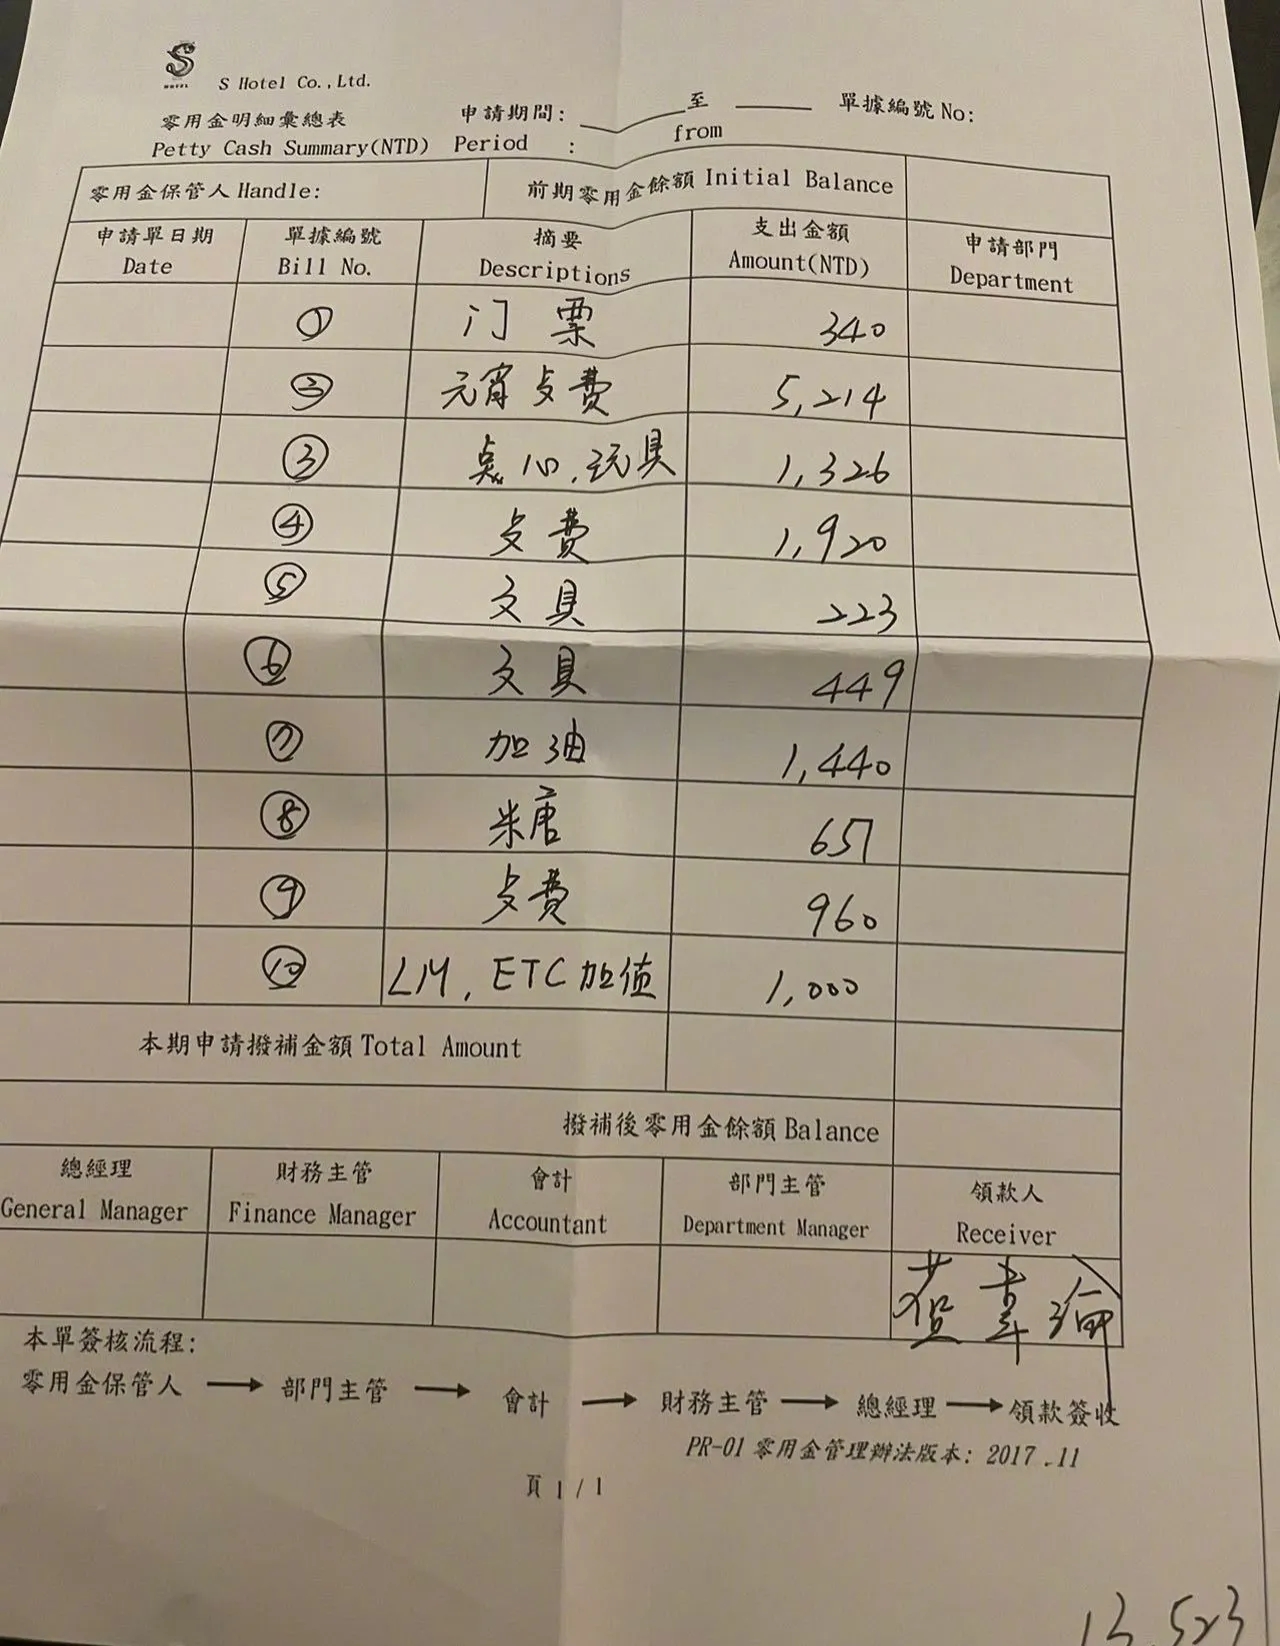 S
HOTEL
S Hotel Co.,Ltd.
零用金明細彙總表 申請期間: ____至 ____ 單據編號 No:
Petty Cash Summary(NTD) Period : from
零用金保管人 Handle: 前期零用金餘額 Initial Balance
申請單日期 單據編號 摘要 支出金額 申請部門
Date Bill No. Descriptions Amount(NTD) Department
① 门票 340
② 元宵 费 5,214
③ 点心,玩具 1,326
④ 費 1,920
⑤ 文具 223
⑥ 文具 449
⑦ 加油 1,440
⑧ 糖 651
⑨ 費 960
⑩ LM, ETC 加值 1,000
本期申請撥補金額 Total Amount
撥補後零用金餘額 Balance
總經理 財務主管 會計 部門主管 領款人
General Manager Finance Manager Accountant Department Manager Receiver
本單簽核流程:
零用金保管人 → 部門主管 → 會計 → 財務主管 → 總經理 → 領款簽收
PR-01 零用金管理辦法版本: 2017 .11
頁 1 / 1
13,523